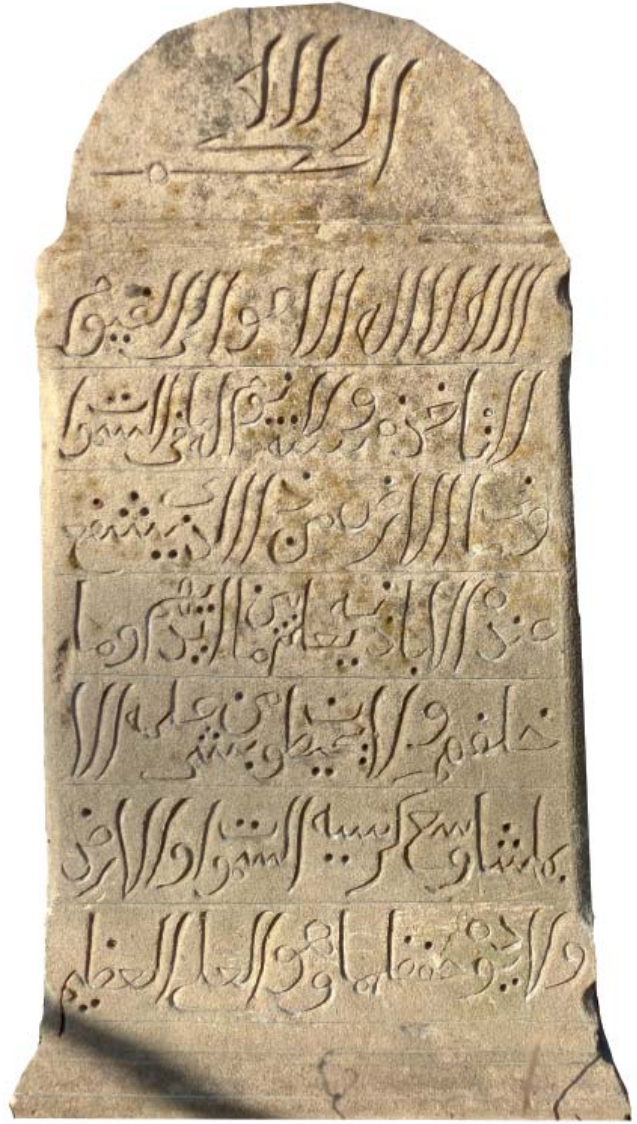 الى الله
الله لا اله الا هو الحي القيوم
لا تاخذه سنة ولا نوم له ما في السموات
وما في الارض من ذا الذي يشفع
عنده الا باذنه يعلم ما بين ايديهم وما
خلفهم ولا يحيطون بشي من علمه الا
بما شا وسع كرسيه السموات والارض
ولا يوده حفظهما وهو العلي العظيم